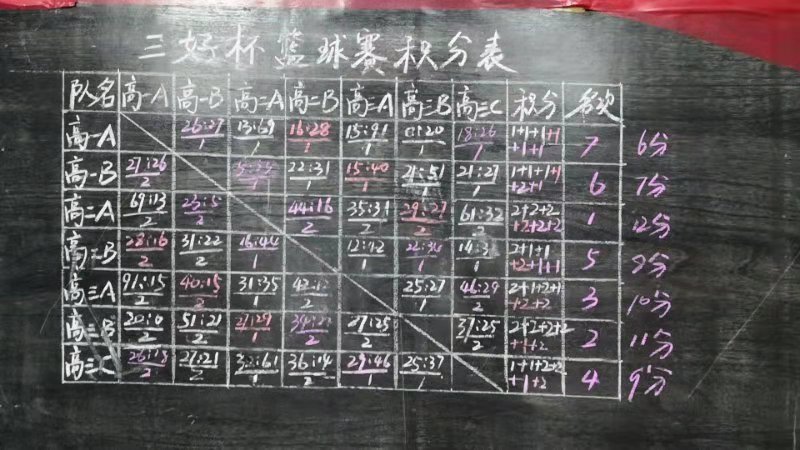 三好杯篮球赛积分表
队名 高一A 高一B 高二A 高二B 高三A 高三B 高三C 积分 名次
高一A 26:27/1 13:69/1 16:28/1 15:91/1 0:20/1 18:26/1 1+1+1+1+1+1 7 6分
高一B 27:26/2 22:31/1 15:40/1 21:51/1 21:27/1 1+1+1+1+2+1 6 7分
高二A 69:13/2 44:16/2 35:31/2 29:27/2 61:32/2 2+2+2+2+2+2 1 12分
高二B 28:16/2 31:22/2 16:44/1 12:42/1 14:36/1 2+1+1+2+1+1 5 8分
高三A 91:15/2 40:15/2 31:35/1 42:12/2 25:27/1 46:29/2 2+1+2+1+2+2 3 10分
高三B 20:0/2 51:21/2 27:29/1 27:25/2 37:25/2 2+2+2+2+1+2 2 11分
高三C 26:18/2 27:21/2 32:61/1 36:14/2 29:46/1 25:37/1 1+1+2+2+1+2 4 9分